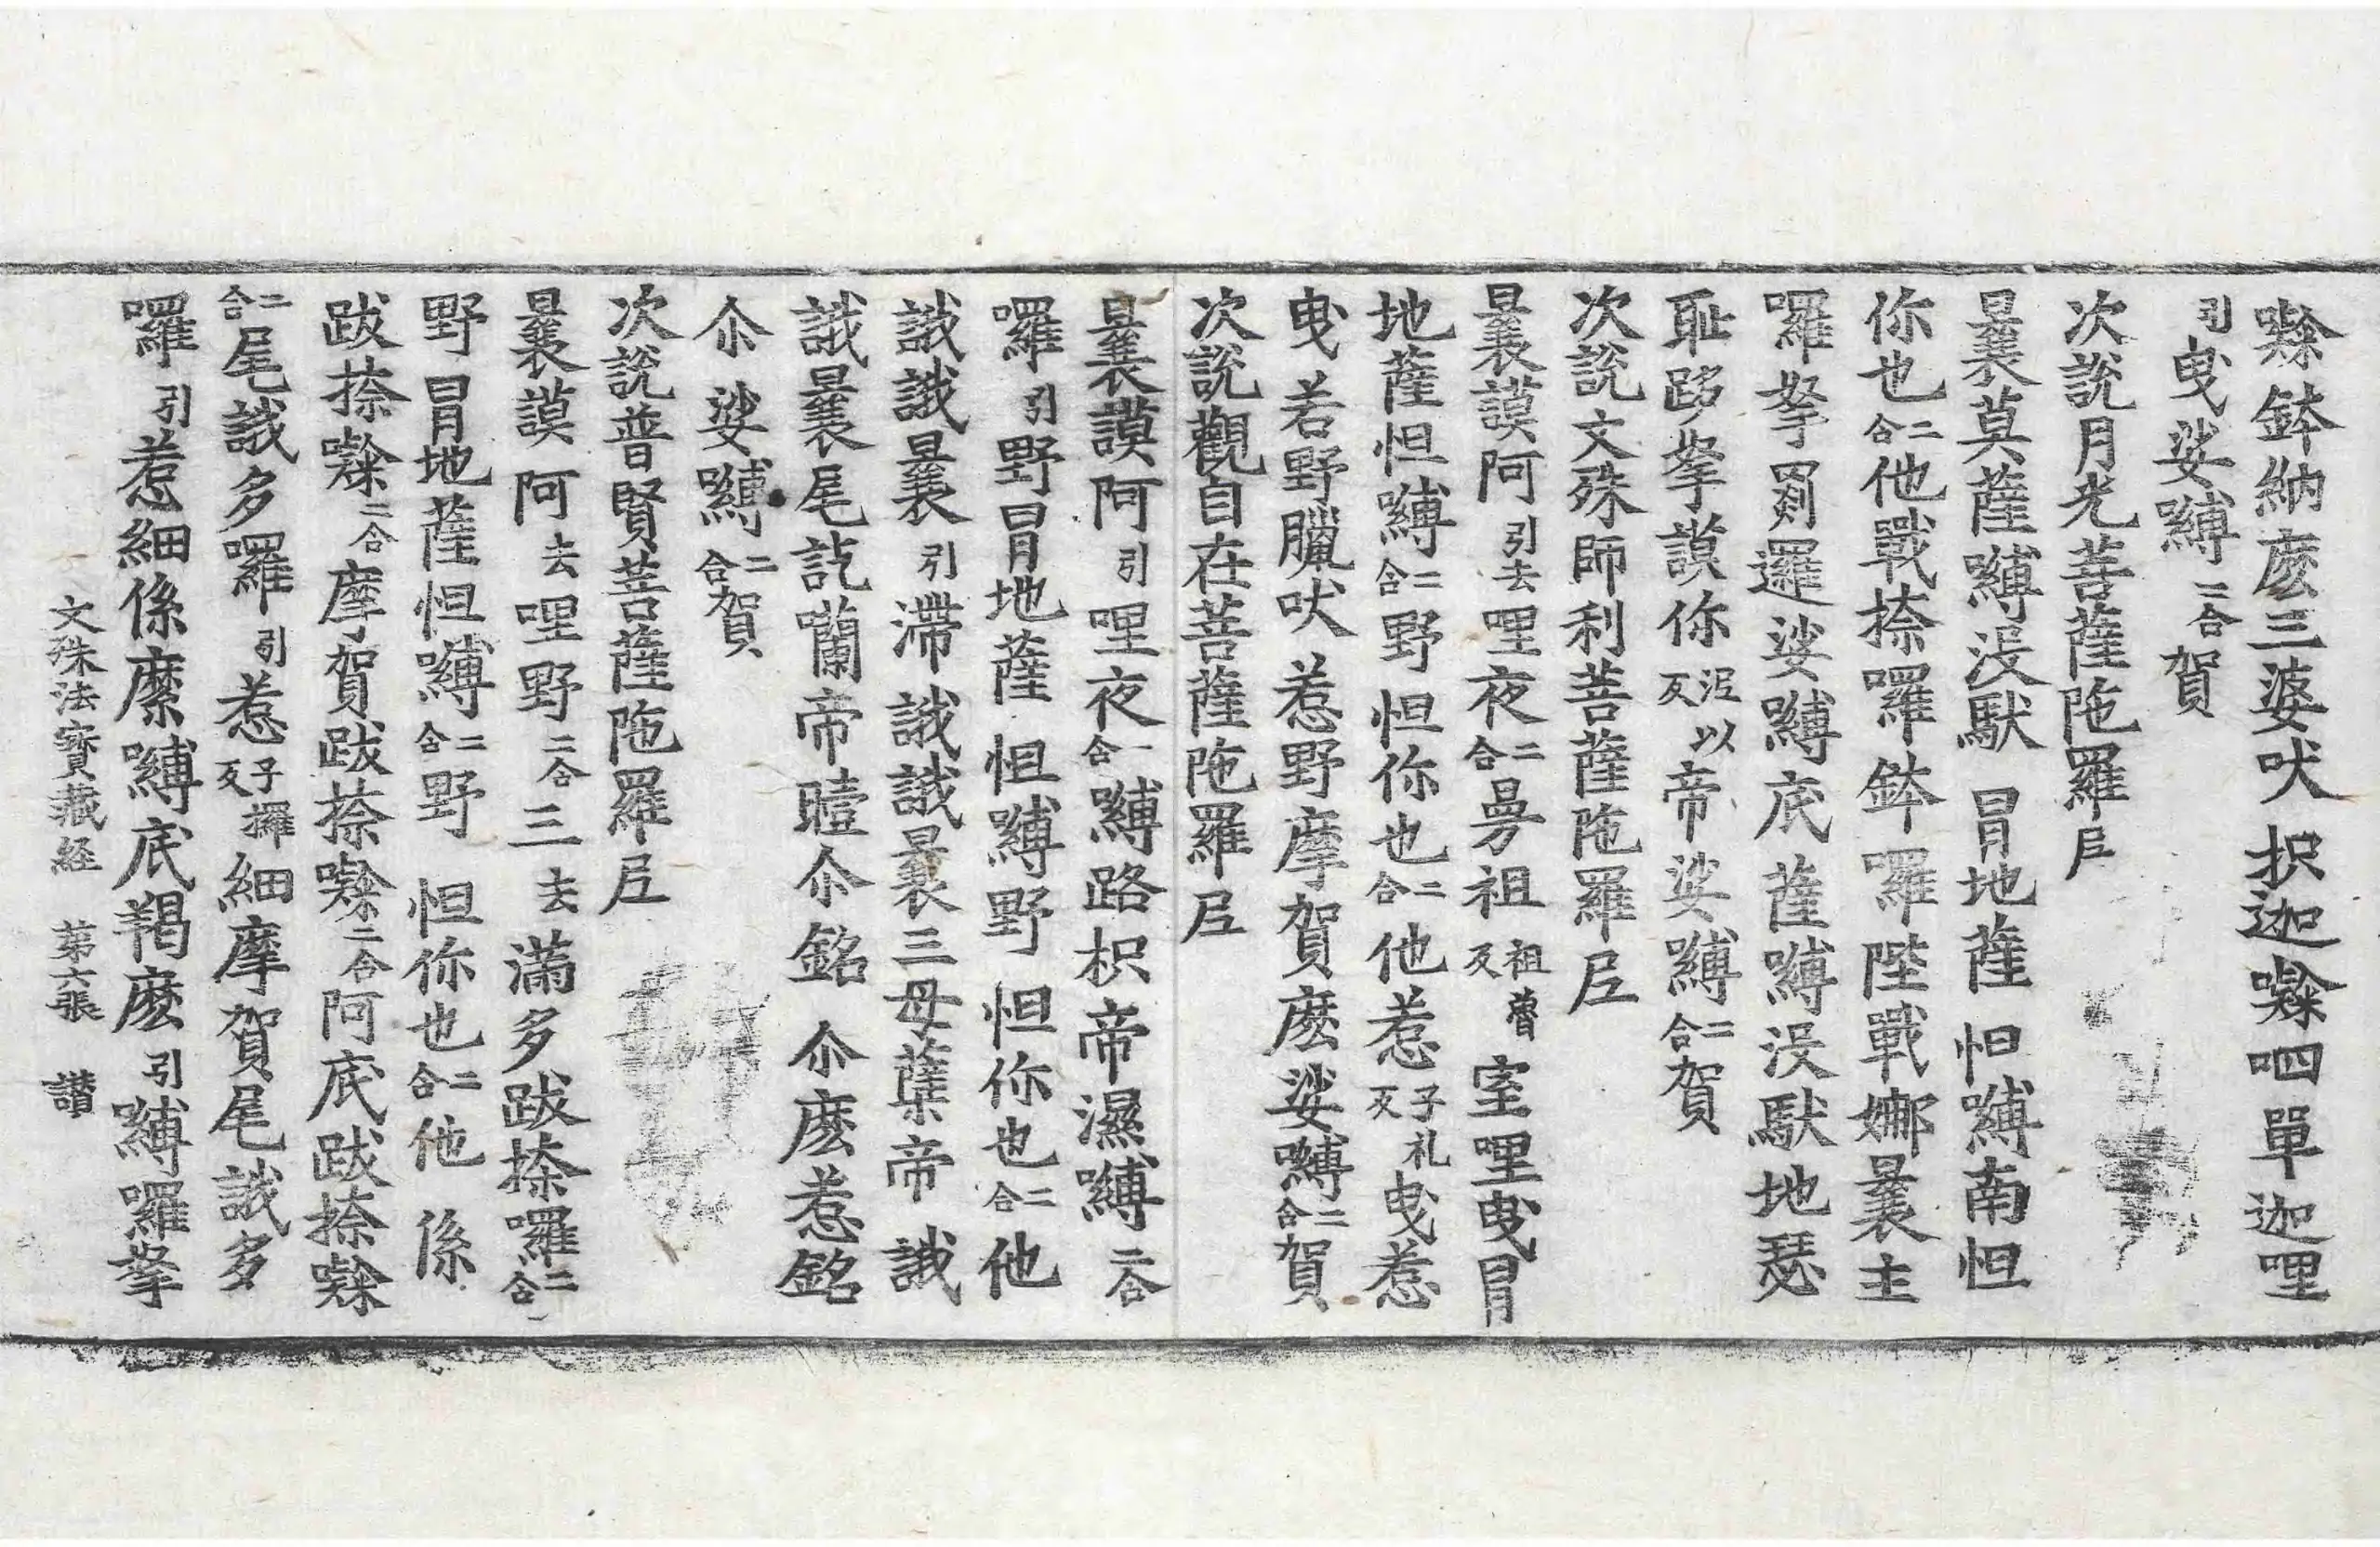 㘑鉢納麽三婆吠枳迦㘑呬單迦哩
引曳娑嚩二合賀
次說月光菩薩陁羅尼
曩莫薩嚩沒馱冒地薩怛嚩南怛
你也二合他戰捺囉鉢囉陛戰娜曩主
囉拏罽邏娑嚩底薩嚩沒馱地瑟
耻跢拏謨你泥以反帝娑嚩二合賀
次說文殊師利菩薩陁羅尼
曩謨阿引去哩夜二合曼祖祖嚕反室哩曳冒
地薩怛嚩二合野怛你也二合他惹子礼反曳惹
曳若野臘吠惹野摩賀麽娑嚩二合賀
次說觀自在菩薩陁羅尼
曩謨阿引哩夜二合嚩路枳帝濕嚩二合
囉引野冒地薩怛嚩野怛你也二合他
誐誐曩引滯誐誐曩三母蘖帝誐
誐曩尾訖囒帝曀尒銘尒麽惹銘
尒娑嚩二合賀
次說普賢菩薩陁羅尼
曩謨阿去哩野二合三去滿多跋捺囉二合
野冒地薩怛嚩二合野怛你也二合他係
跋捺㘑二合摩賀跋捺㘑二合阿底跋捺㘑
二合尾誐多囉引惹子攞反細摩賀尾誐多
囉引惹細係縻嚩底羯麽引嚩囉拏
文殊法寶藏経　第六張　讃